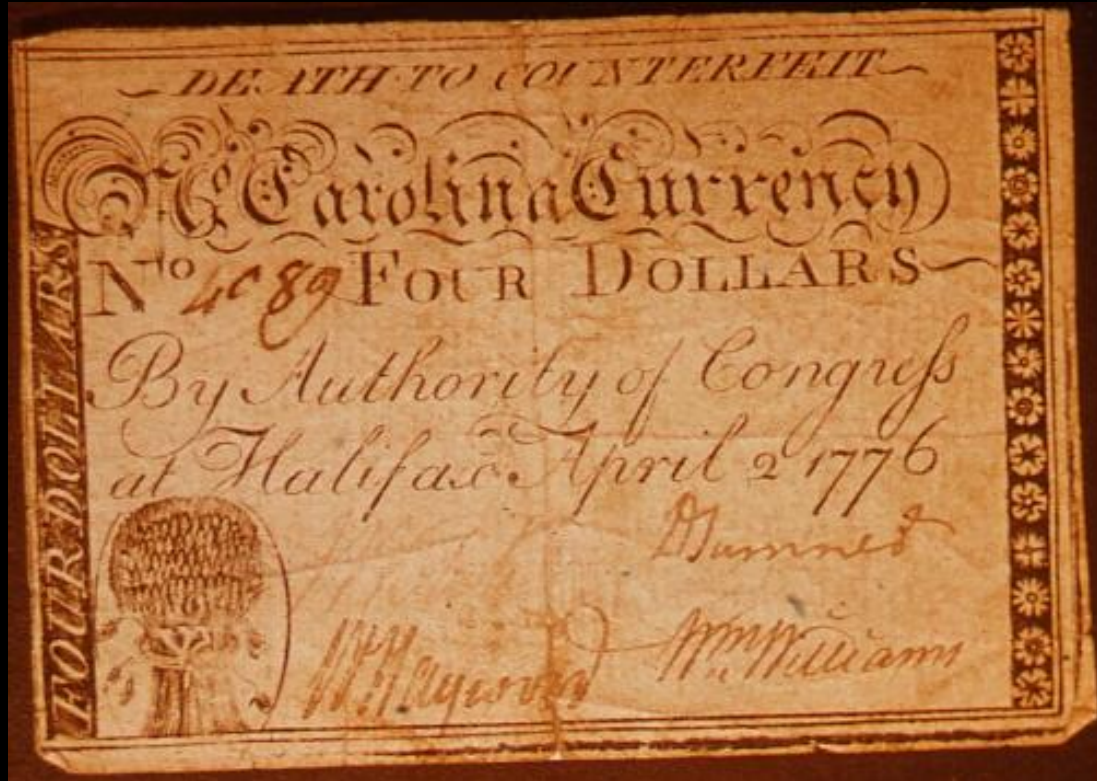 DEATH TO COUNTERFEIT
No Carolina Currency
No 4089 FOUR DOLLARS
By Authority of Congreſs
at Halifax April 2 1776
FOUR DOLLARS
D Sumner
W Haywood
Wm Williams